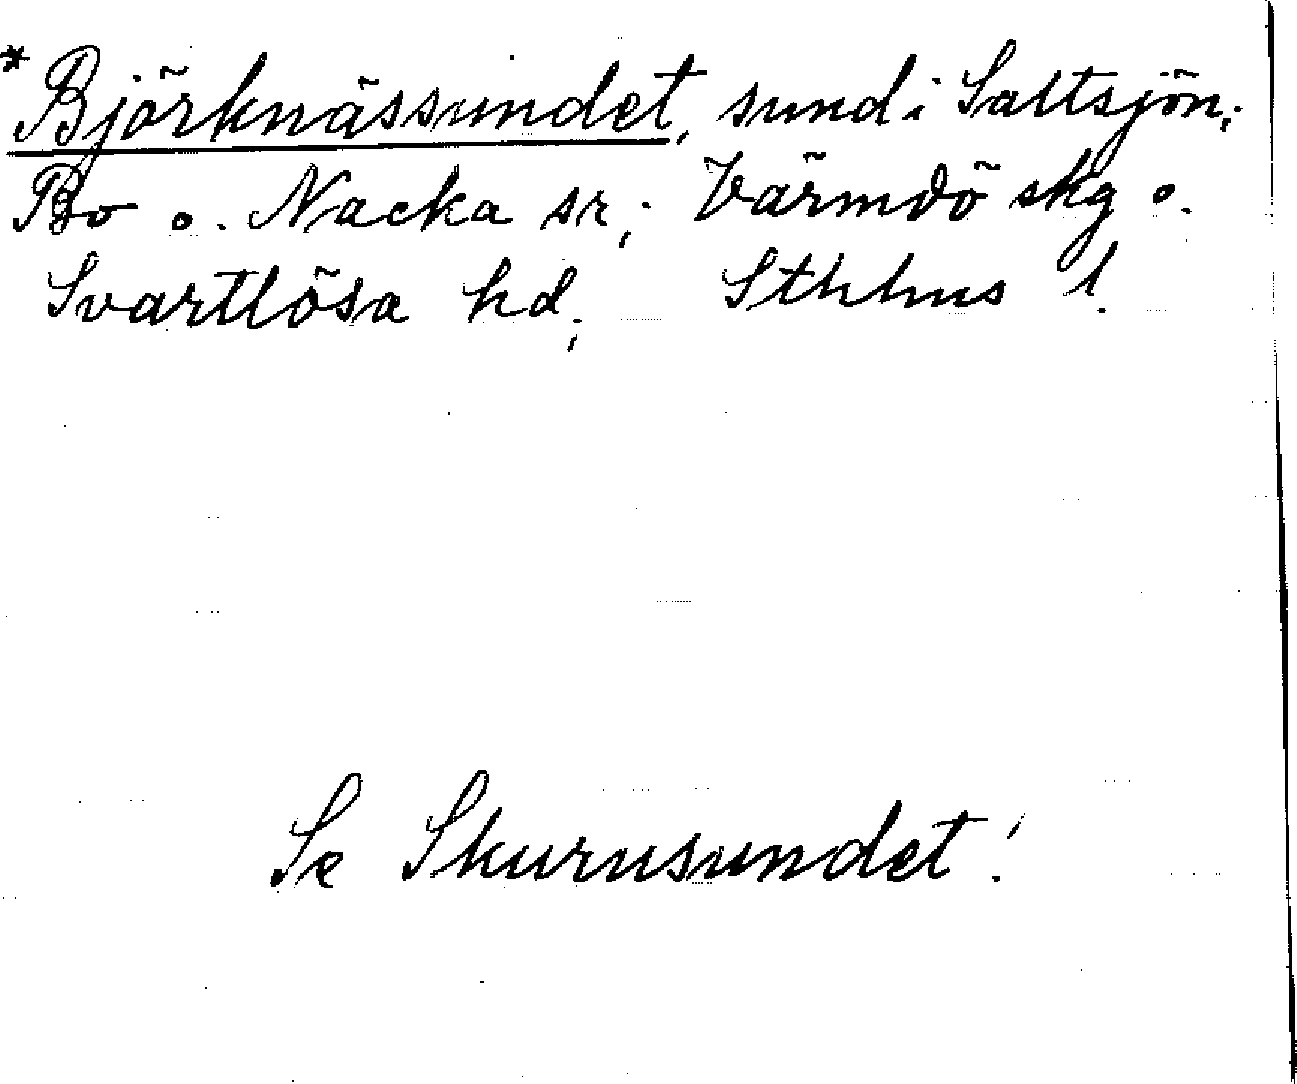 *Björknässundet, sund i Saltsjön;
Bo o. Nacka sr; Värmdö skg o.
Svartlösa hd; Sthlms l.
Se Skurusundet!